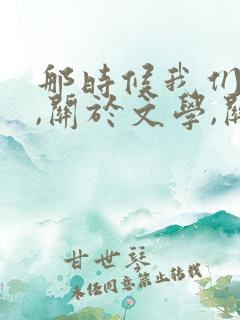 那時候我們
,關於文學,關
甘世琴
未经同意禁止转载